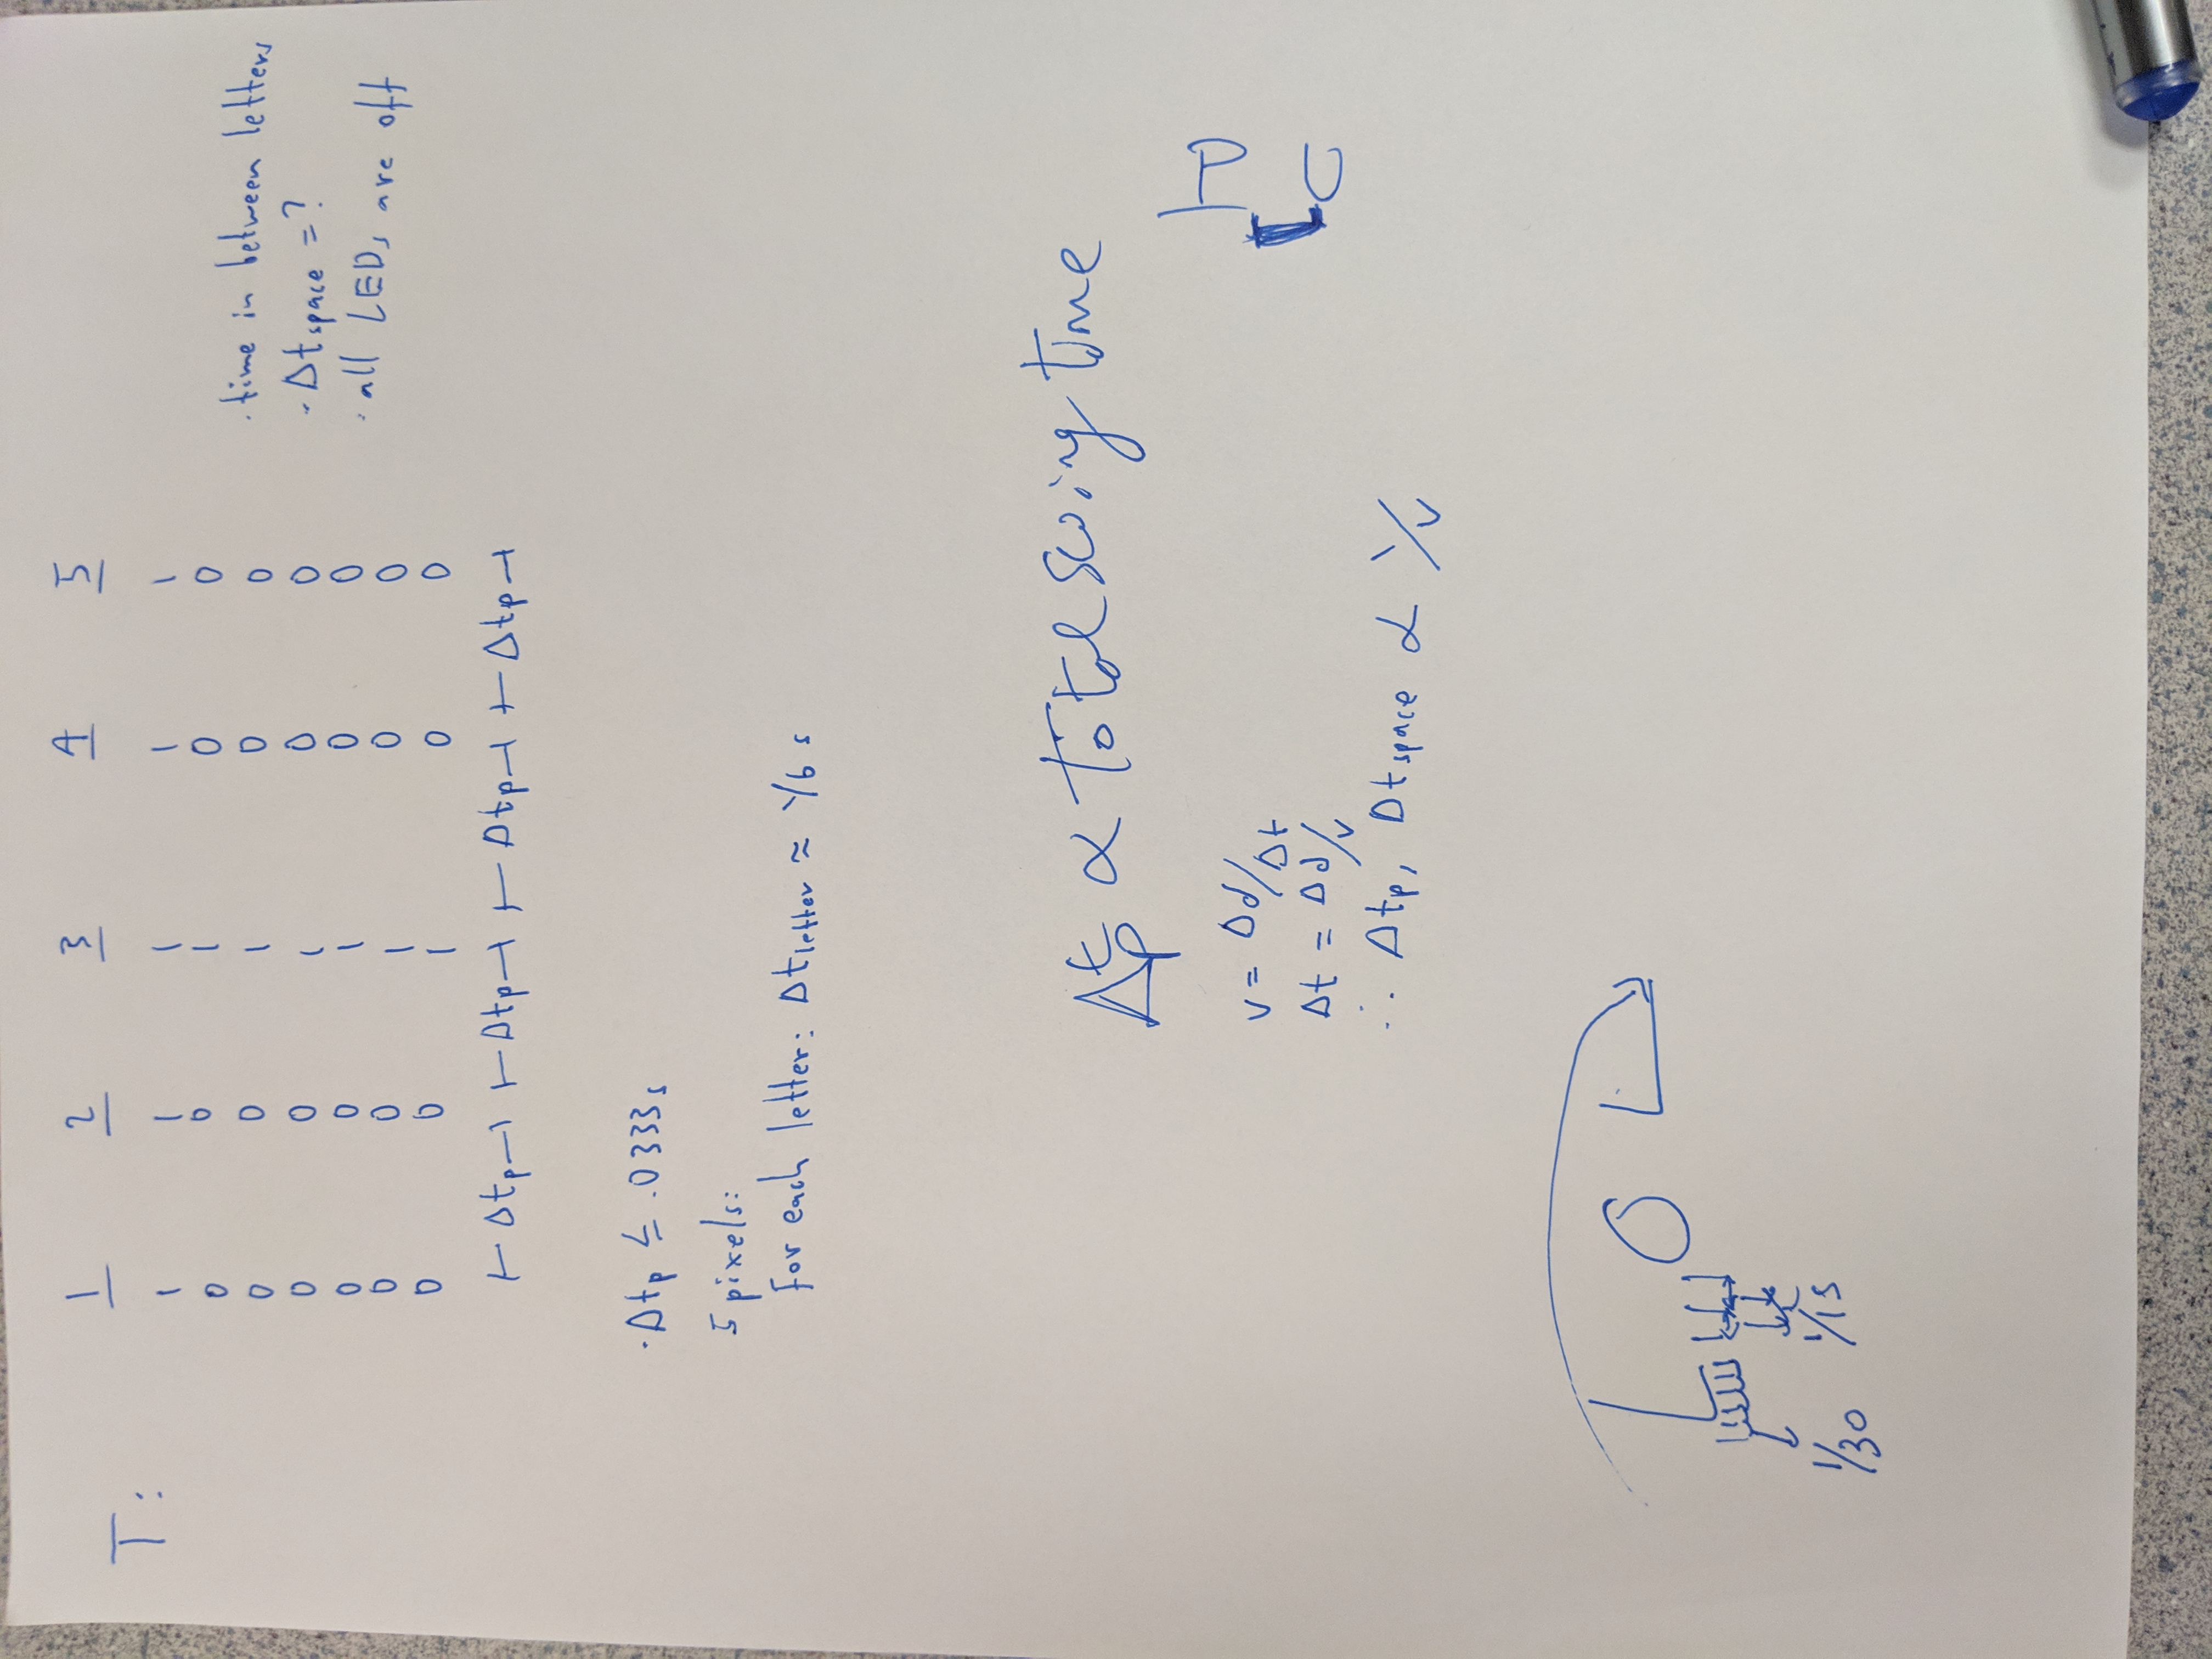 1 2 3 4 5
T:
1 1 1 1 1
0 0 1 0 0
0 0 1 0 0
0 0 1 0 0
0 0 1 0 0
0 0 1 0 0
0 0 1 0 0
Δtp Δtp Δtp Δtp
· time in between letters
· Δtspace = ?
· all LEDs are off
· Δtp ≤ .0333s
5 pixels:
For each letter: Δtletter ≈ 1/6 s
Δtp ∝ Total swing time
v = Δd/Δt
Δt = Δd/v
∴ Δtp, Δtspace ∝ 1/v
L O L
1/30 1/15